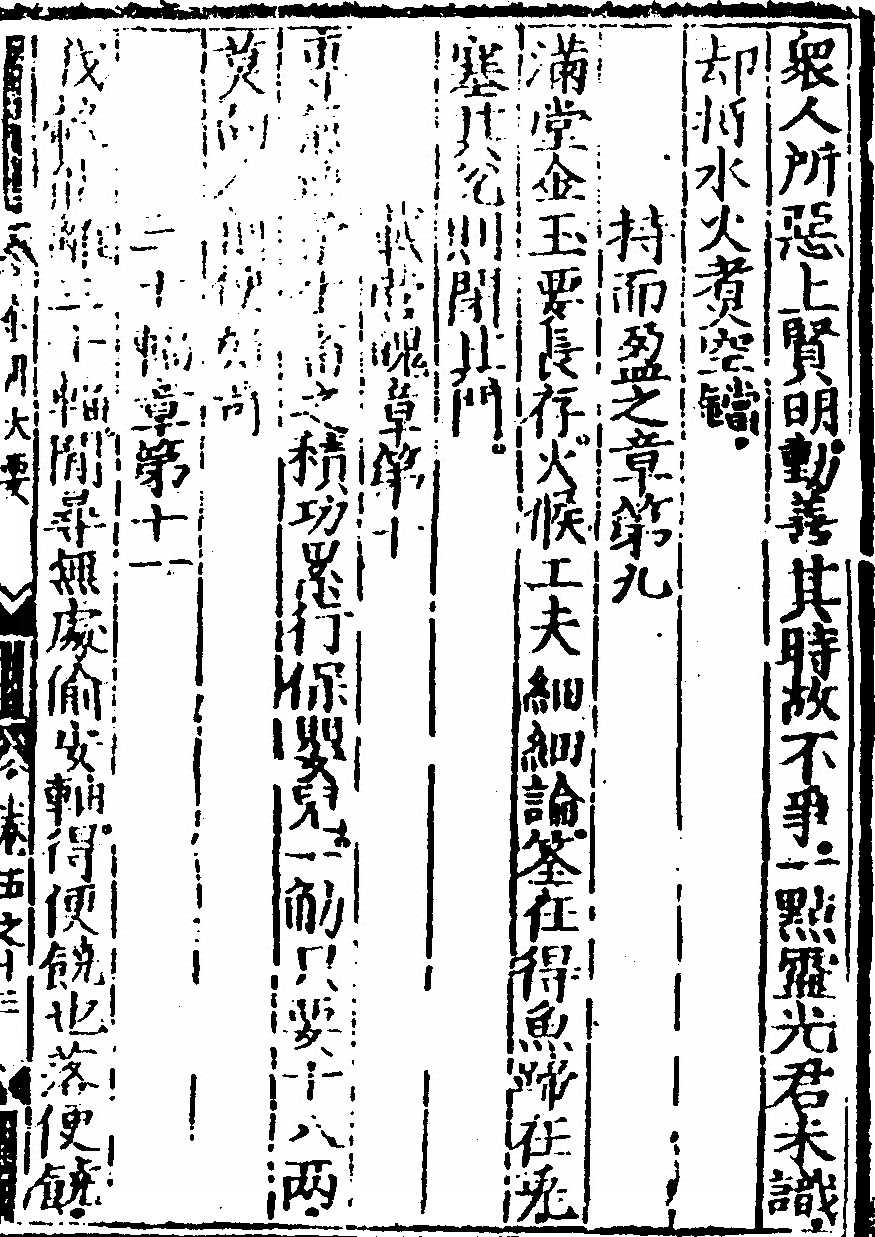 衆人所惡上賢明動善其時故不爭一點靈光君未識
却將水火煮空鐺
持而盈之章第九
滿堂金玉要長存火候工夫細細論筌在得魚蹄在兎
塞其兊則閉其門
載營魄章第十
專氣 之積功累行保嬰兒一觔只要十八两
莫向 則便
三十輻章第十一
三十輻閒尋無處偷安軸得便饒也落便饒
大要
卷五之十三